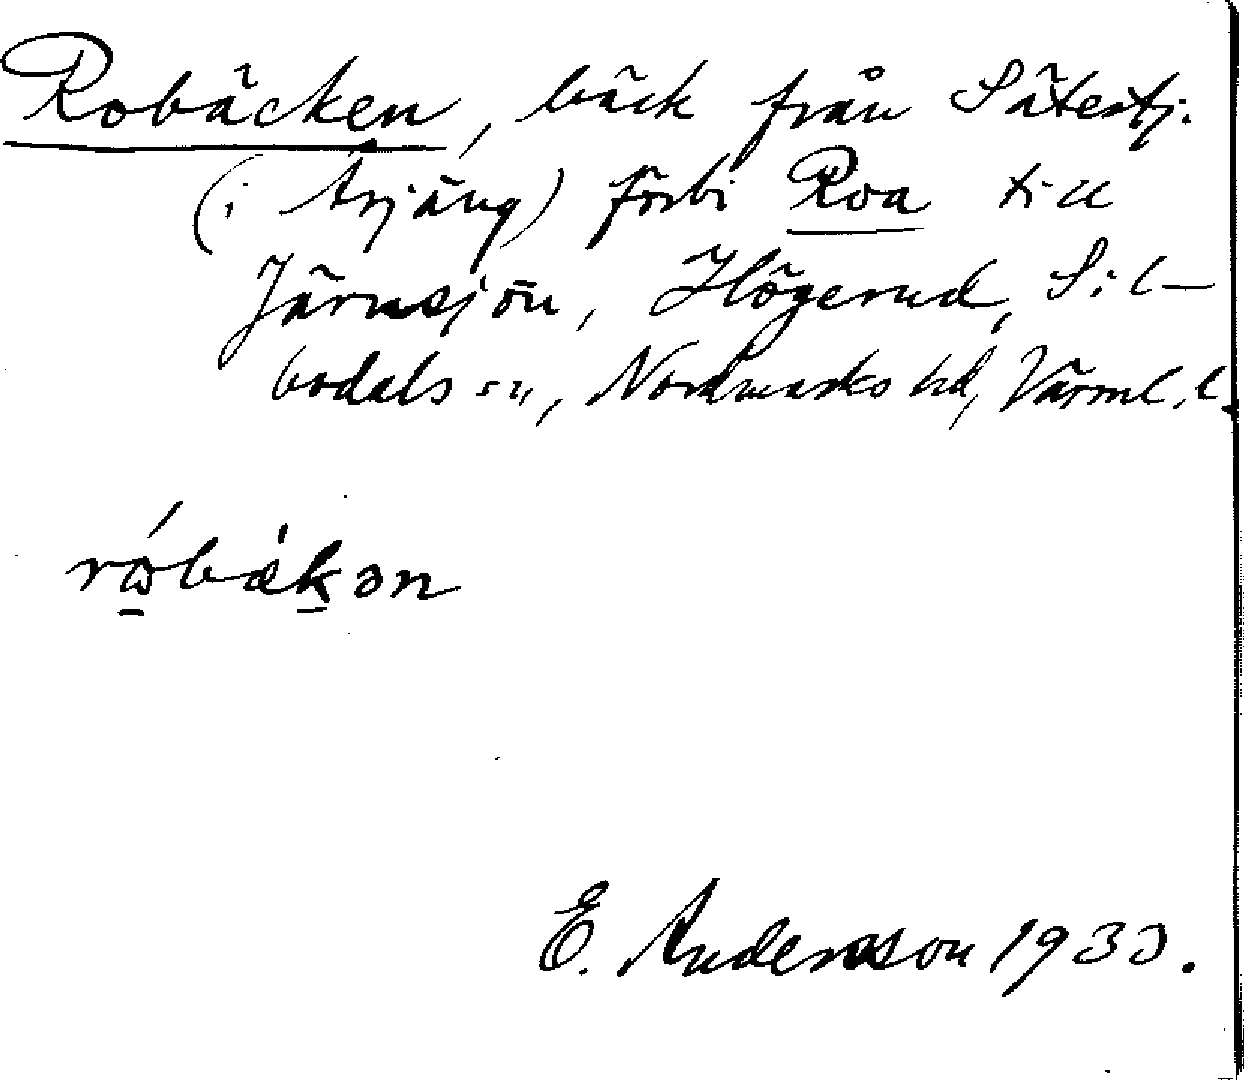 Robäcken, bäck från Sätertj.
(i Årjäng) förbi Roa till
Järnsjön, Högerud, Sil-
bodals sn, Nordmarks hd, Värml. l.
E. Andersson 1933.